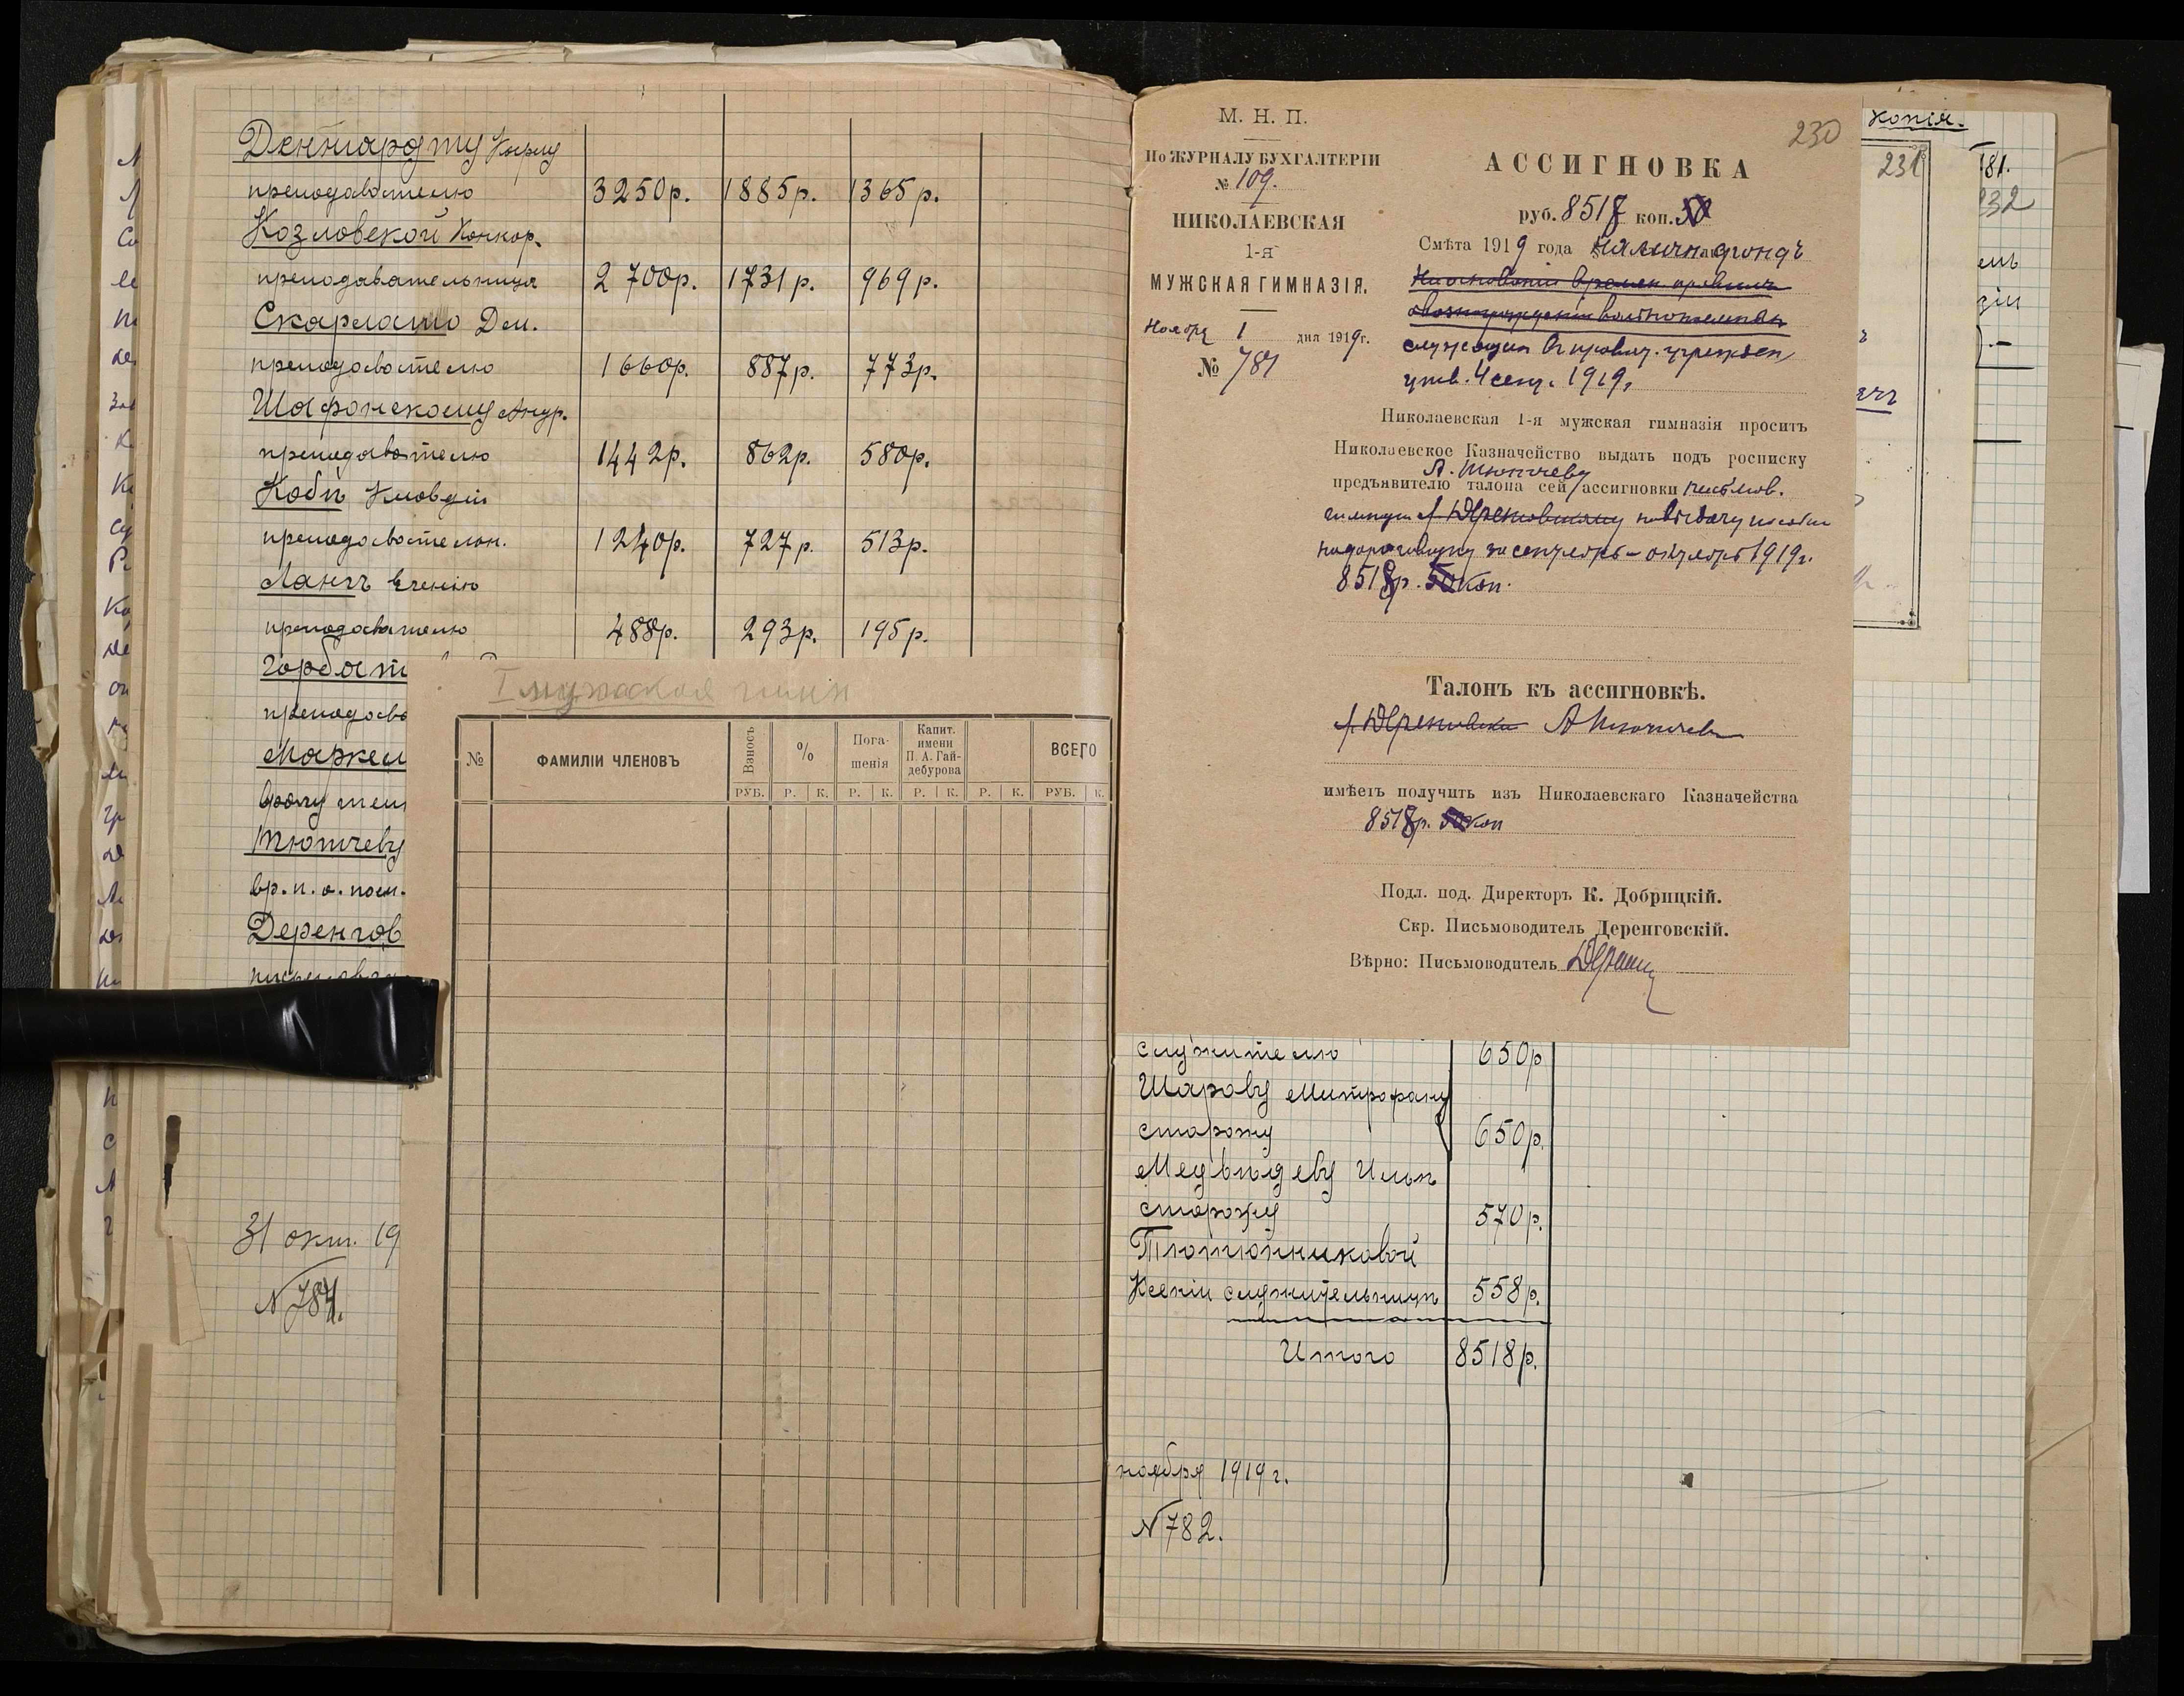 Деннгардту Карлу
преподавателю 3250р. 1885р. 1365р.
Козловской Конкор.
преподавательнице 2700р. 1731р. 969р.
Скарлато Дем.
преподавателю 1660р. 887р. 773р.
Шафонскому
преподавателю 1442р. 862р. 580р.
Кобъ Клавдіи
преподавателю. 1240р. 727р. 513р.
Лангъ Евгенію
преподавателю 488р. 293р. 195р.
Горбат
преподава
Маркел
Тютчеву
вр. и. о. пом.
Деренгов
31 окт. 19
N 784.
I мужская гимн
№ ФАМИЛІИ ЧЛЕНОВЪ Взносъ % Пога- Капит. ВСЕГО
шенія имени
П. А. Гай-
дебурова
РУБ. Р. К. Р. К. Р. К. Р. К. РУБ. К.
М. Н. П.
По ЖУРНАЛУ БУХГАЛТЕРІИ
№ 109.
НИКОЛАЕВСКАЯ
1-я
МУЖСКАЯ ГИМНАЗІЯ.
Ноября 1 дня 1919г.
№ 781
230
АССИГНОВКА
руб. 8518 коп. 50
Смѣта 1919 года
служащих в правит. учрежден
утв. 4 сент. 1919,
Николаевская 1-я мужская гимназія проситъ
Николаевское Казначейство выдать подъ росписку
А. Тютчеву
предъявителю талона сей ассигновки письмов.
на выдачу пособія
на дороговизну за сентябрь – октябрь 1919г.
8518р. 50 коп.
Талонъ къ ассигновкѣ.
А Тютчев
имѣетъ получить изъ Николаевскаго Казначейства
8518р. 50 коп
Подл. под. Директоръ К. Добрицкій.
Скр. Письмоводитель Деренговскій.
Вѣрно: Письмоводитель
копія.
231
781.
232
служителю 650р
Шарову Митрофану
сторожу 650р.
Медвѣдеву Ильѣ
сторожу 570р.
Тютюнниковой
Ксеніи служительницѣ 558р.
Итого 8518р.
ноября 1919 г.
N 782.